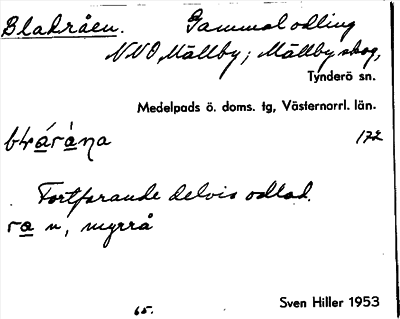 Blakråen. Gammal odling
NNO Mällby; Mällby skog,
Tynderö sn.
Medelpads ö. doms. tg, Västernorrl. län.
172
Fortfarande delvis odlad.
ra n, myrrå
65.
Sven Hiller 1953